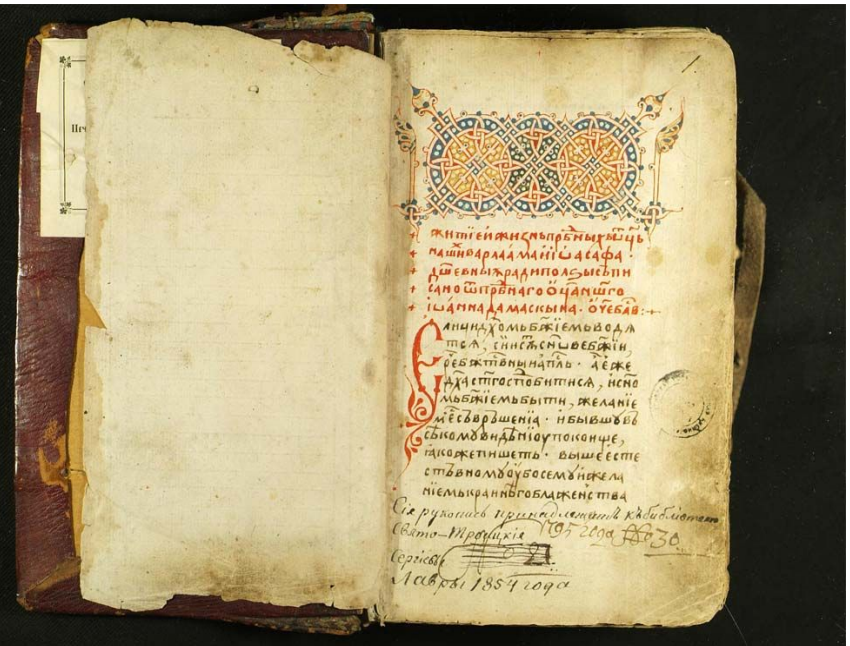 1.
+ житїе и жизнь прпⷣбныхъ ѡ҃ць
+ нашⷯи варлаама и їѡасафа ·
+ дш҃евныѧ ради ползы съпи
+ сано ѿ прпⷣбнаго ѻ҃ца нашⷢ҇го
+ їѡанна дамаскына · ѻ҃че бл҃в :·+
Єлици дх҃омь бж҃їемь водѧ
тсѧ, сїи сѫ сн҃ѡве бж҃їи,
рече бжтⷭ҇вныи апⷭ҇лъ · а еже
дх҃а ст҃го сподобитисѧ, и сн҃о
мь бж҃їемь быти, желанїе
мь есть съвръшенїа · и бывшꙋ въ
сѣкомꙋ видѣнїю упокоище,
ꙗкоже пишеть · выше есте
ствъвномꙋ ꙋбо семꙋ и жела
нїемь краинѣго блаженства
Сія рукопись принадлежитъ къ библіотекѣ
Свято-Троицкія 1795 года № 30
Сергіевы
Лавры 1854 года